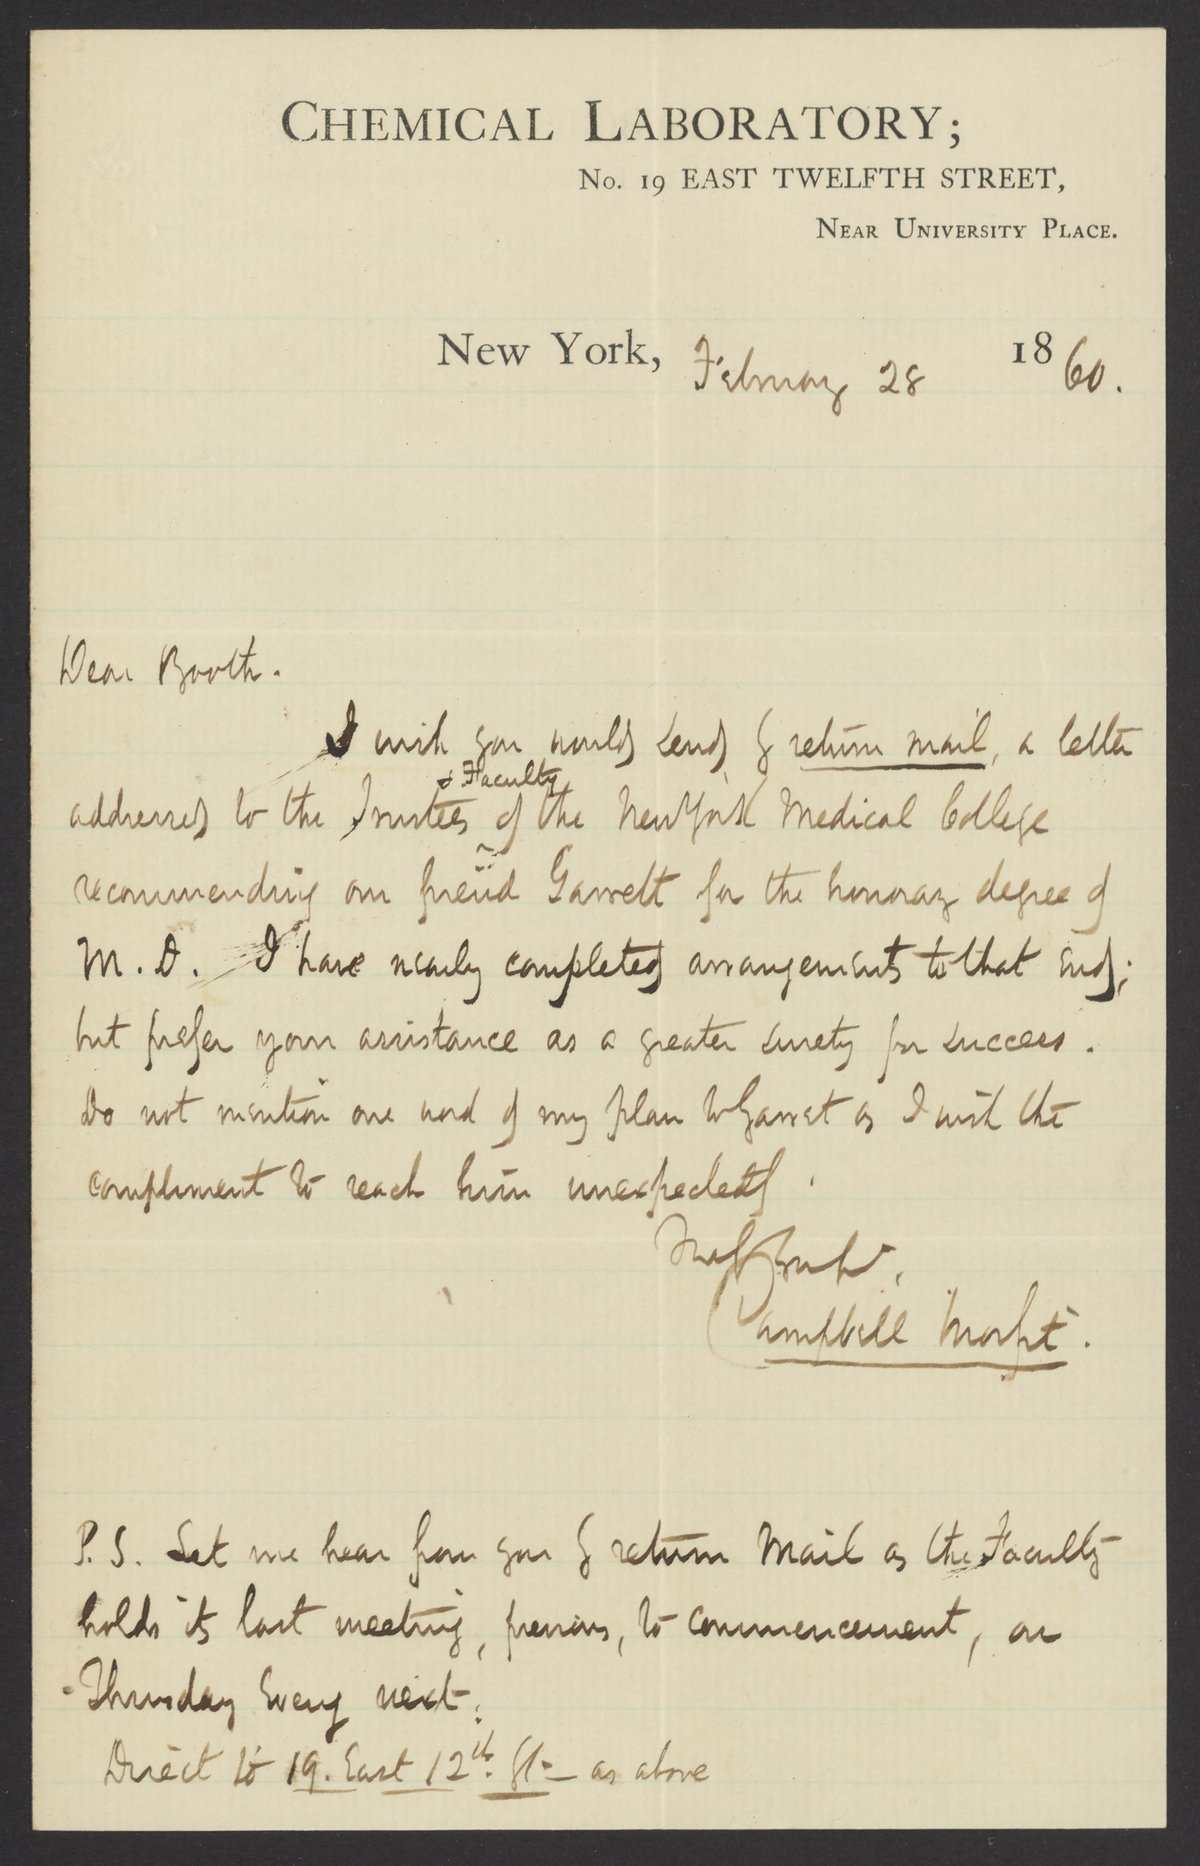 CHEMICAL LABORATORY;
No. 19 EAST TWELFTH STREET,
NEAR UNIVERSITY PLACE.
New York, February 28 1860.
Dear Booth.
I wish you would send by return mail, a letter
& Faculty
addressed to the Trustees of the New York Medical College
recommending our friend Garrett for the honorary degree of
M.D. I have nearly completed arrangements to that end;
but prefer your assistance as a greater surety for success.
Do not mention one word of my plan to Garret as I wish the
compliment to reach him unexpectedly.
Campbell Morfit.
P.S. Let me hear from you by return Mail as the Faculty
holds its last meeting, previous, to commencement, on
Thursday Eveng next.
Direct to 19. East 12th St— as above